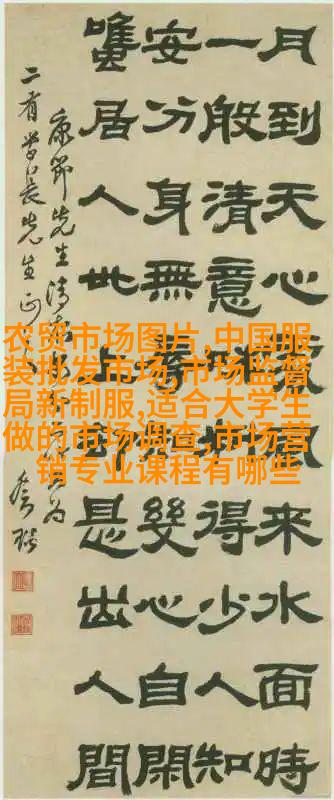 月到天心處風來水面時
一般清意味料得少人知
安分身無辱知幾心自閒
雖居人世上卻是出人間
康節先生清
二有學長先生正
农贸市场图片,中国服
装批发市场,市场监督
局新制服,适合大学生
做的市场调查,市场营
销专业课程有哪些